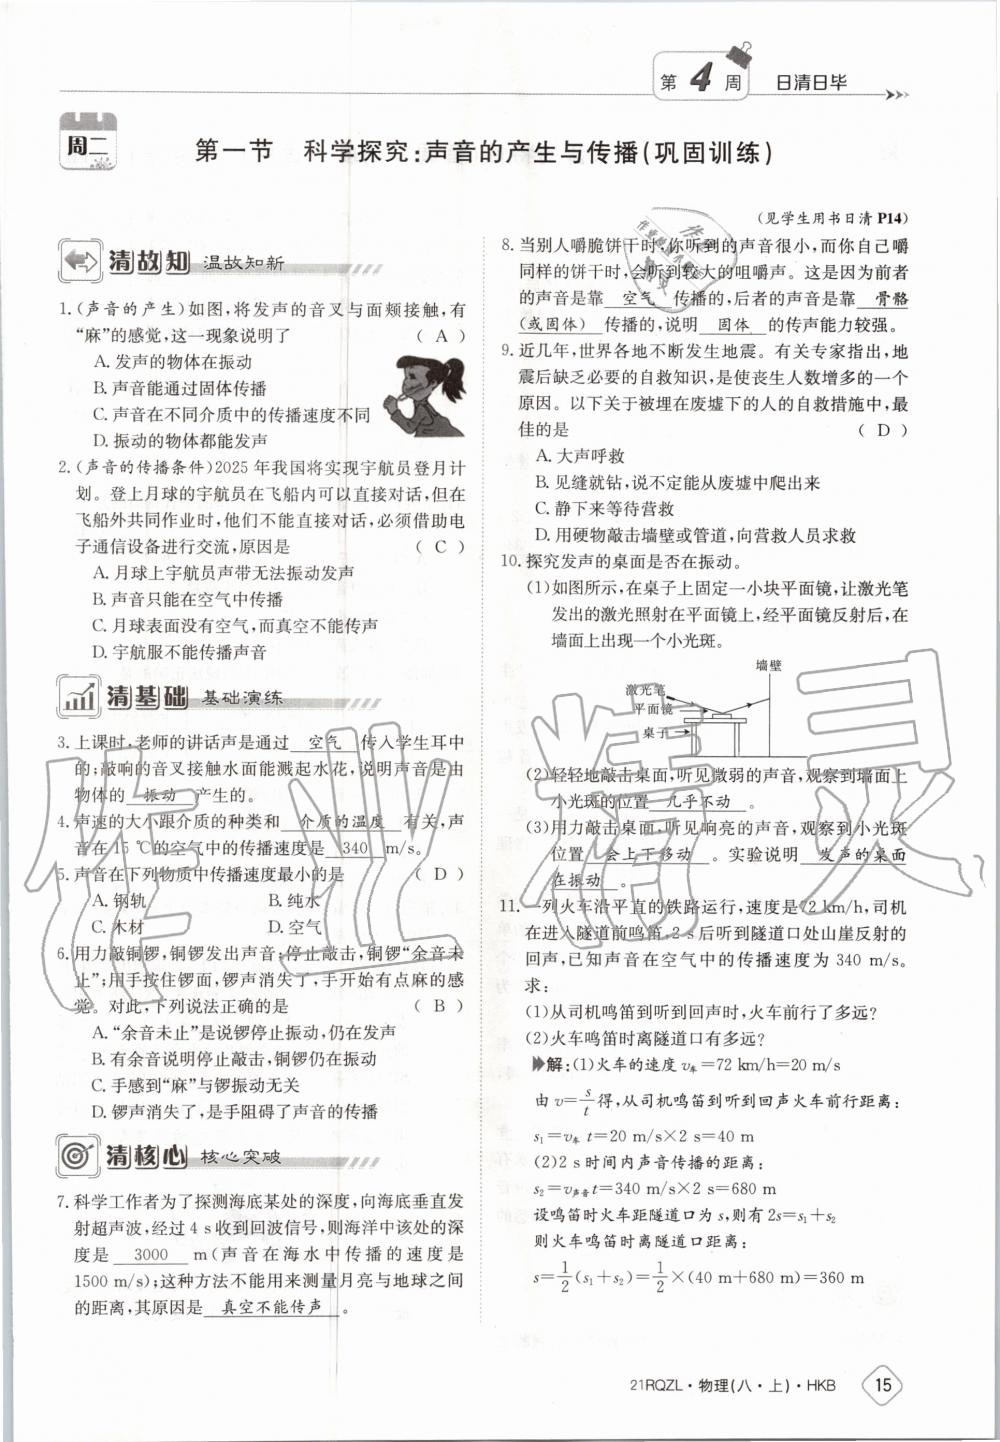 第 4 周 日清日毕
周二
第一节 科学探究:声音的产生与传播(巩固训练)
(见学生用书日清 P14)
清故知 温故知新
1.(声音的产生)如图,将发声的音叉与面颊接触,有
“麻”的感觉,这一现象说明了 ( A )
A. 发声的物体在振动
B. 声音能通过固体传播
C. 声音在不同介质中的传播速度不同
D. 振动的物体都能发声
2.(声音的传播条件)2025 年我国将实现宇航员登月计
划。登上月球的宇航员在飞船内可以直接对话,但在
飞船外共同作业时,他们不能直接对话,必须借助电
子通信设备进行交流,原因是 ( C )
A. 月球上宇航员声带无法振动发声
B. 声音只能在空气中传播
C. 月球表面没有空气,而真空不能传声
D. 宇航服不能传播声音
清基础 基础演练
3. 上课时,老师的讲话声是通过 空气 传入学生耳中
的;敲响的音叉接触水面能溅起水花,说明声音是由
物体的 振动 产生的。
4. 声速的大小跟介质的种类和 介质的温度 有关,声
音在 15 ℃的空气中的传播速度是 340 m/s。
5. 声音在下列物质中传播速度最小的是 ( D )
A. 钢轨 B. 纯水
C. 木材 D. 空气
6. 用力敲铜锣,铜锣发出声音;停止敲击,铜锣“余音未
止”;用手按住锣面,锣声消失了,手开始有点麻的感
觉。对此,下列说法正确的是 ( B )
A. “余音未止”是说锣停止振动,仍在发声
B. 有余音说明停止敲击,铜锣仍在振动
C. 手感到“麻”与锣振动无关
D. 锣声消失了,是手阻碍了声音的传播
清核心 核心突破
7. 科学工作者为了探测海底某处的深度,向海底垂直发
射超声波,经过 4 s 收到回波信号,则海洋中该处的深
度是 3000 m(声音在海水中传播的速度是
1500 m/s);这种方法不能用来测量月亮与地球之间
的距离,其原因是 真空不能传声 。
8. 当别人嚼脆饼干时,你听到的声音很小,而你自己嚼
同样的饼干时,会听到较大的咀嚼声。这是因为前者
的声音是靠 空气 传播的,后者的声音是靠 骨骼
(或固体) 传播的,说明 固体 的传声能力较强。
9. 近几年,世界各地不断发生地震。有关专家指出,地
震后缺乏必要的自救知识,是使丧生人数增多的一个
原因。以下关于被埋在废墟下的人的自救措施中,最
佳的是 ( D )
A. 大声呼救
B. 见缝就钻,说不定能从废墟中钻出来
C. 静下来等待营救
D. 用硬物敲击墙壁或管道,向营救人员求救
10. 探究发声的桌面是否在振动。
(1)如图所示,在桌子上固定一小块平面镜,让激光笔
发出的激光照射在平面镜上,经平面镜反射后,在
墙面上出现一个小光斑。
墙壁
激光笔
平面镜
桌子
(2)轻轻地敲击桌面,听见微弱的声音,观察到墙面上
小光斑的位置 几乎不动 。
(3)用力敲击桌面,听见响亮的声音,观察到小光斑
位置 会上下移动 。实验说明 发声的桌面
在振动 。
11. 一列火车沿平直的铁路运行,速度是72 km/h,司机
在进入隧道前鸣笛,2 s后听到隧道口处山崖反射的
回声,已知声音在空气中的传播速度为 340 m/s。
求:
(1)从司机鸣笛到听到回声时,火车前行了多远?
(2)火车鸣笛时离隧道口有多远?
解:(1)火车的速度 v车=72 km/h=20 m/s
由 v=s/t得,从司机鸣笛到听到回声火车前行距离:
s₁=v车 t=20 m/s×2 s=40 m
(2)2 s 时间内声音传播的距离:
s₂=v声音t=340 m/s×2 s=680 m
设鸣笛时火车距隧道口为 s,则有 2s=s₁+s₂
则火车鸣笛时离隧道口距离:
s=1/2(s₁+s₂)=1/2×(40 m+680 m)=360 m
作业精灵
21RQZL·物理(八·上)·HKB 15